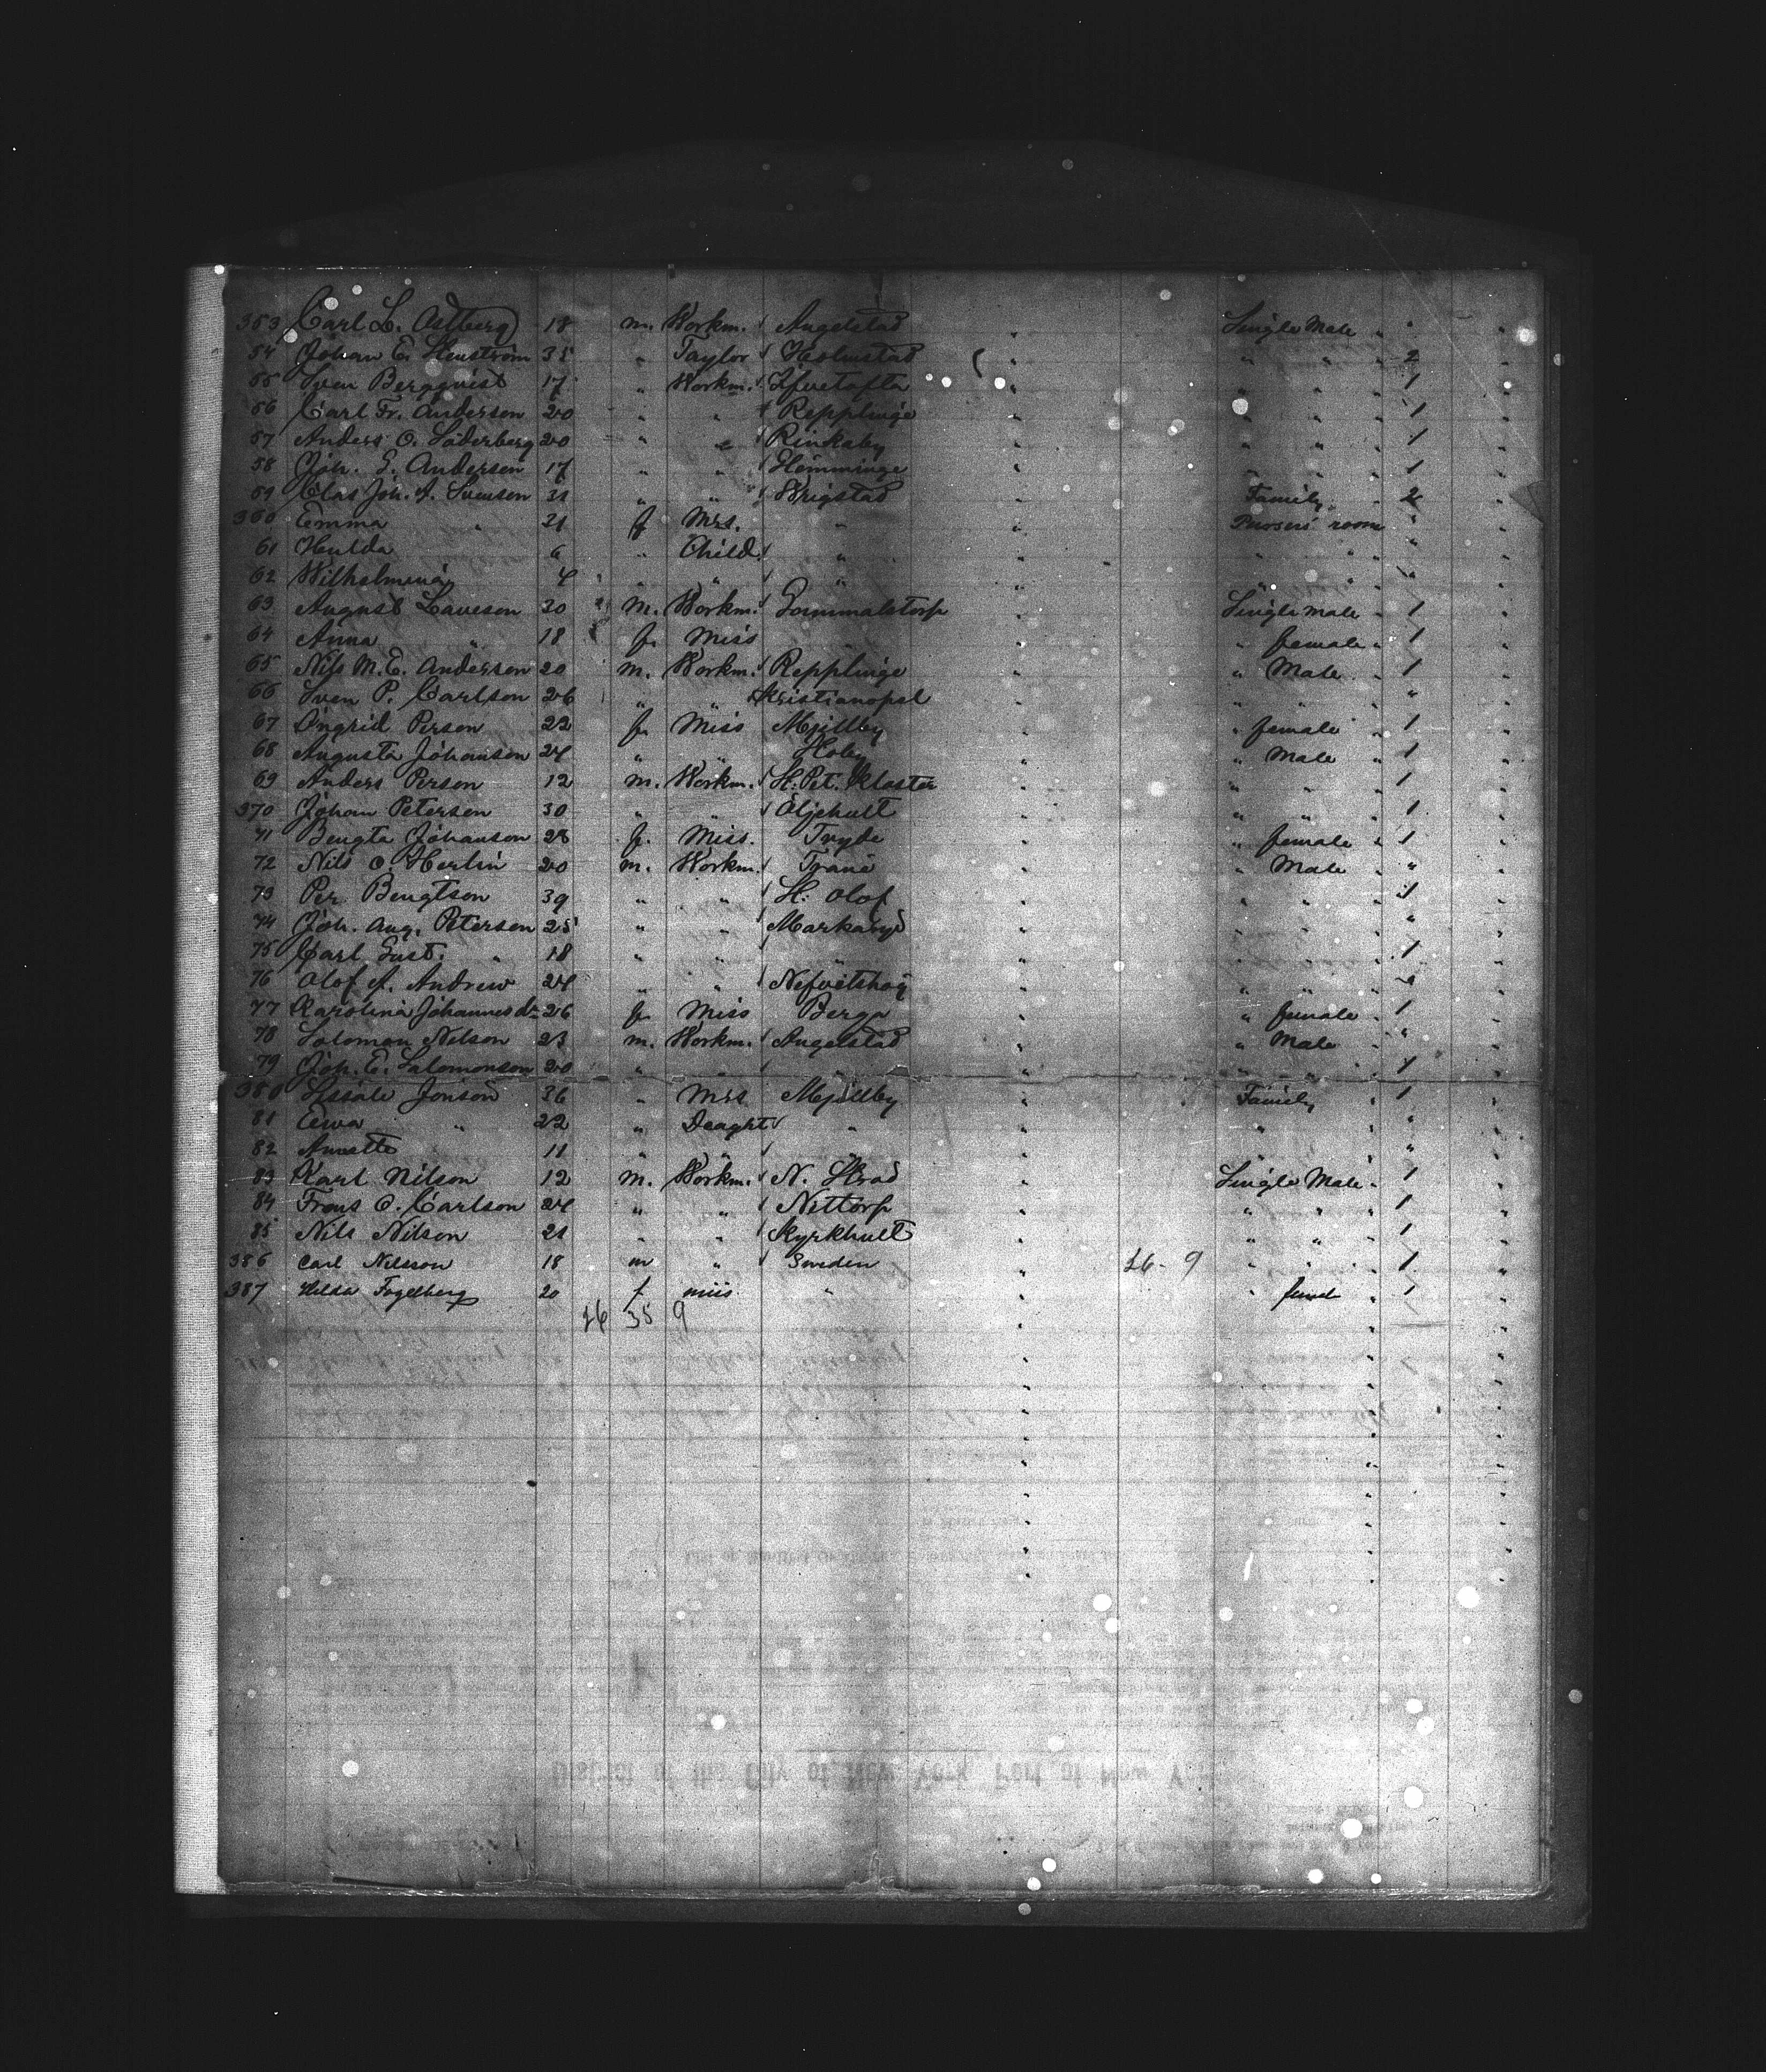 353 Carl L. Astberg 18 m. Workm. Angelstad Single Male "
54 Johan E. Stenström 35 " Taylor Holmstad " " 2
55 Sven Bergqvist 17 " Workm. " " 1
56 Carl Fr. Anderson 20 " " Repplinge " " 1
57 Anders O. Söderberg 20 " " Rinkaby " " 1
58 Joh. G. Anderson 17 " " Hemminge " " 1
59 Clas Joh. A. Svenson 31 " " Wrigstad Family 2
360 Emma " 31 f Mrs. " Pursers room "
61 Hulda 6 " Child " " " "
62 Wilhelmina 4 " " " " "
63 August Laveson 30 m. Workm. Gammalstorp Single male 1
64 Anna " 18 f. Miss " female 1
65 Nils M. E. Anderson 20 m. Workm. Repplinge " Male 1
66 Sven P. Carlson 26 " " Kristianopel " " "
67 Ingrid Person 22 f. Miss Mjällby " female 1
68 Augusta Johanson 24 " " Hoby " Male 1
69 Anders Person 12 m. Workm. St. Pet. Kloster " " 1
370 Johan Peterson 30 " " Eljehult " " 1
71 Bengta Johanson 28 f. Miss. Tryde " female 1
72 Nils O. Herlin 20 m. Workm. Tranè " Male "
73 Per Bengtson 39 " " St. Olof " " 1
74 Joh. Aug. Peterson 25 " " Markaryd " " "
75 Carl Gust. " 18 " " " " " 1
76 Olof A. Andrew 24 " " " "
77 Karolina Johannesdr 26 f. Miss Berga " female 1
78 Salomon Nelson 23 m. Workm. Angelstad " Male "
79 Joh. E. Salomonson 20 " " " " " 1
380 Jonson 36 " Mrs Mjällby Family 1
81 Ewa " 22 " Daught " " "
82 Annette 11 " " " " "
83 Karl Nilson 12 m. Workm. N. Strad Single Male 1
84 Frans O. Carlson 24 " " Nittorp " " 1
85 Nils Nilson 21 " " Kyrkhult " " 1
386 Carl Nilsson 18 m " Sweden 26 - 9 " " 1
387 Hilda Fogelberg 20 f miss " " femal 1
26 35 9